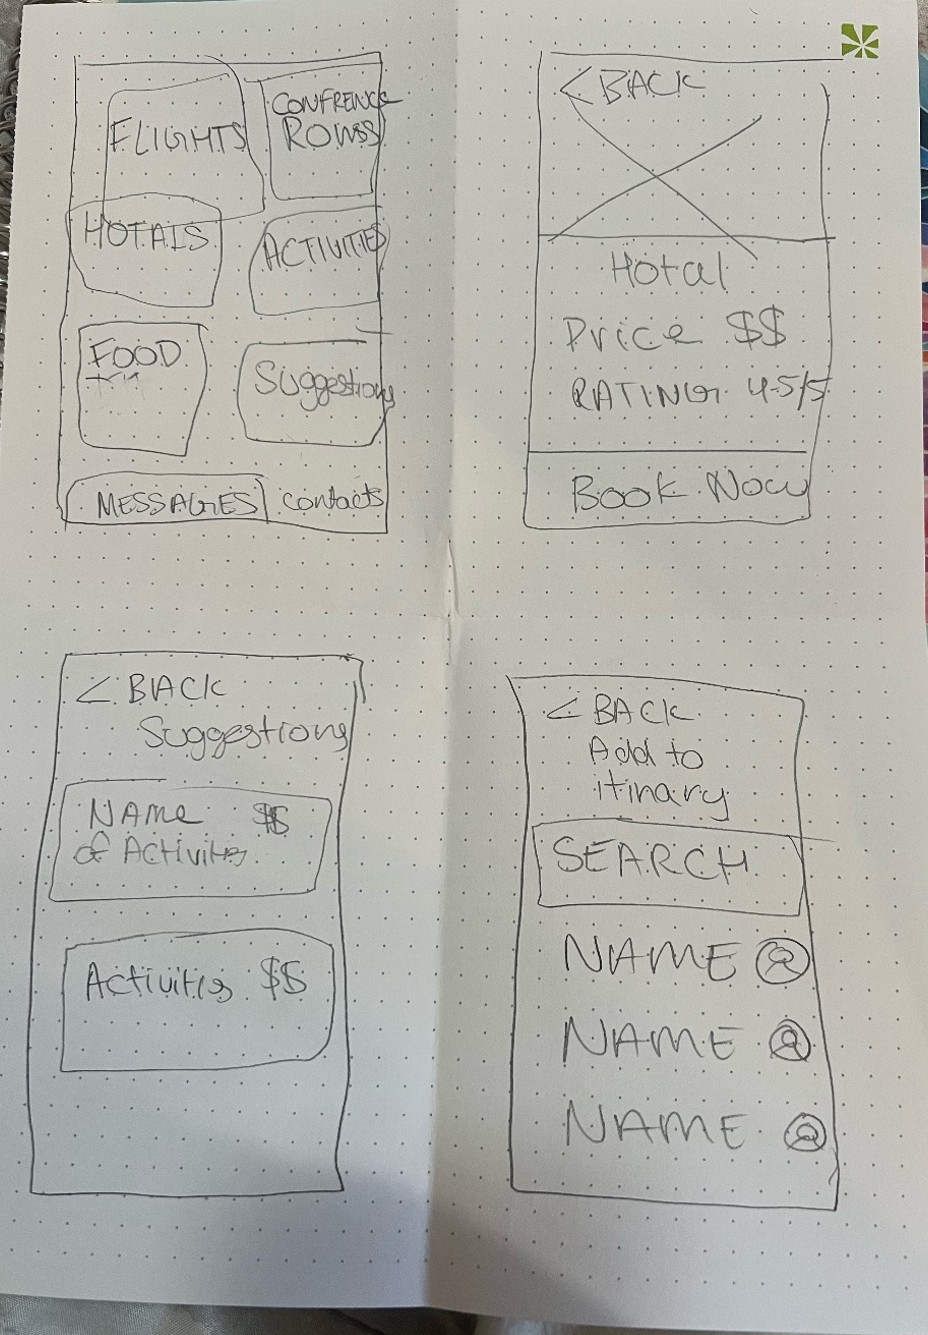 FLIGHTS
CONFRENCE
ROWSS
HOTALS
ACTIVITIES
FOOD
Suggestions
MESSAGES
Contacts
< BACK
Hotal
Price $$
RATING 4.5/5
Book Now
< BACK
Suggestions
NAMe $$
of Activities
Activities $$
< BACK
Add to
itinary
SEARCH
NAME
NAME
NAME